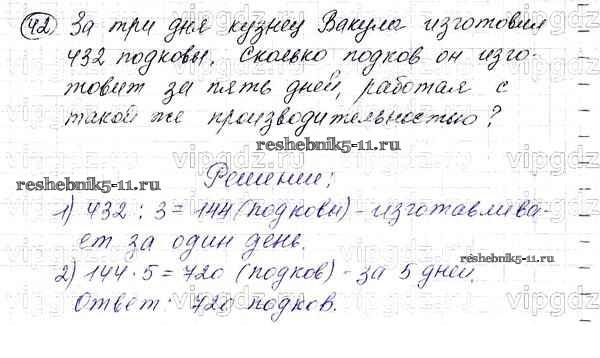 42 За три дня кузнец Вакула изготовил
432 подковы. Сколько подков он изго-
товит за пять дней, работая с
такой же производительностью?
reshebnik5-11.ru
reshebnik5-11.ru
Решение:
1) 432 : 3 = 144 (подковы) - изготавлива-
ет за один день.
2) 144 · 5 = 720 (подков) - за 5 дней.
reshebnik5-11.ru
Ответ: 720 подков.
vipgdz.ru
vipgdz.ru
vipgdz.ru